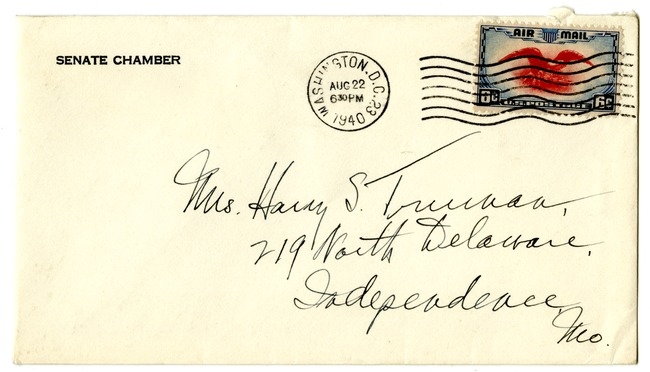 SENATE CHAMBER
WASHINGTON, D.C. 23
AUG 22
6 30 PM
1940
AIR MAIL
6¢ 6¢
Mrs. Harry S. Truman,
219 North Delaware,
Independence,
Mo.